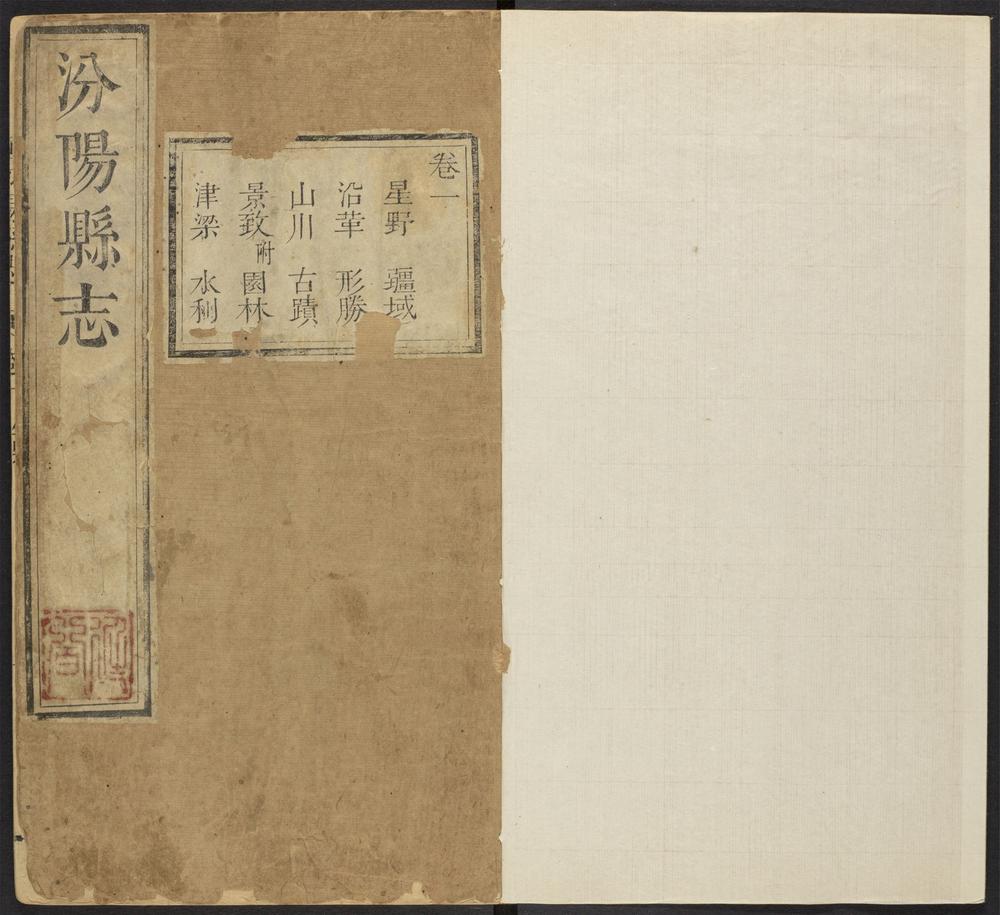 汾陽縣志
卷一
星野 疆域
沿革 形勝
山川 古蹟
景致附 園林
津梁 水利